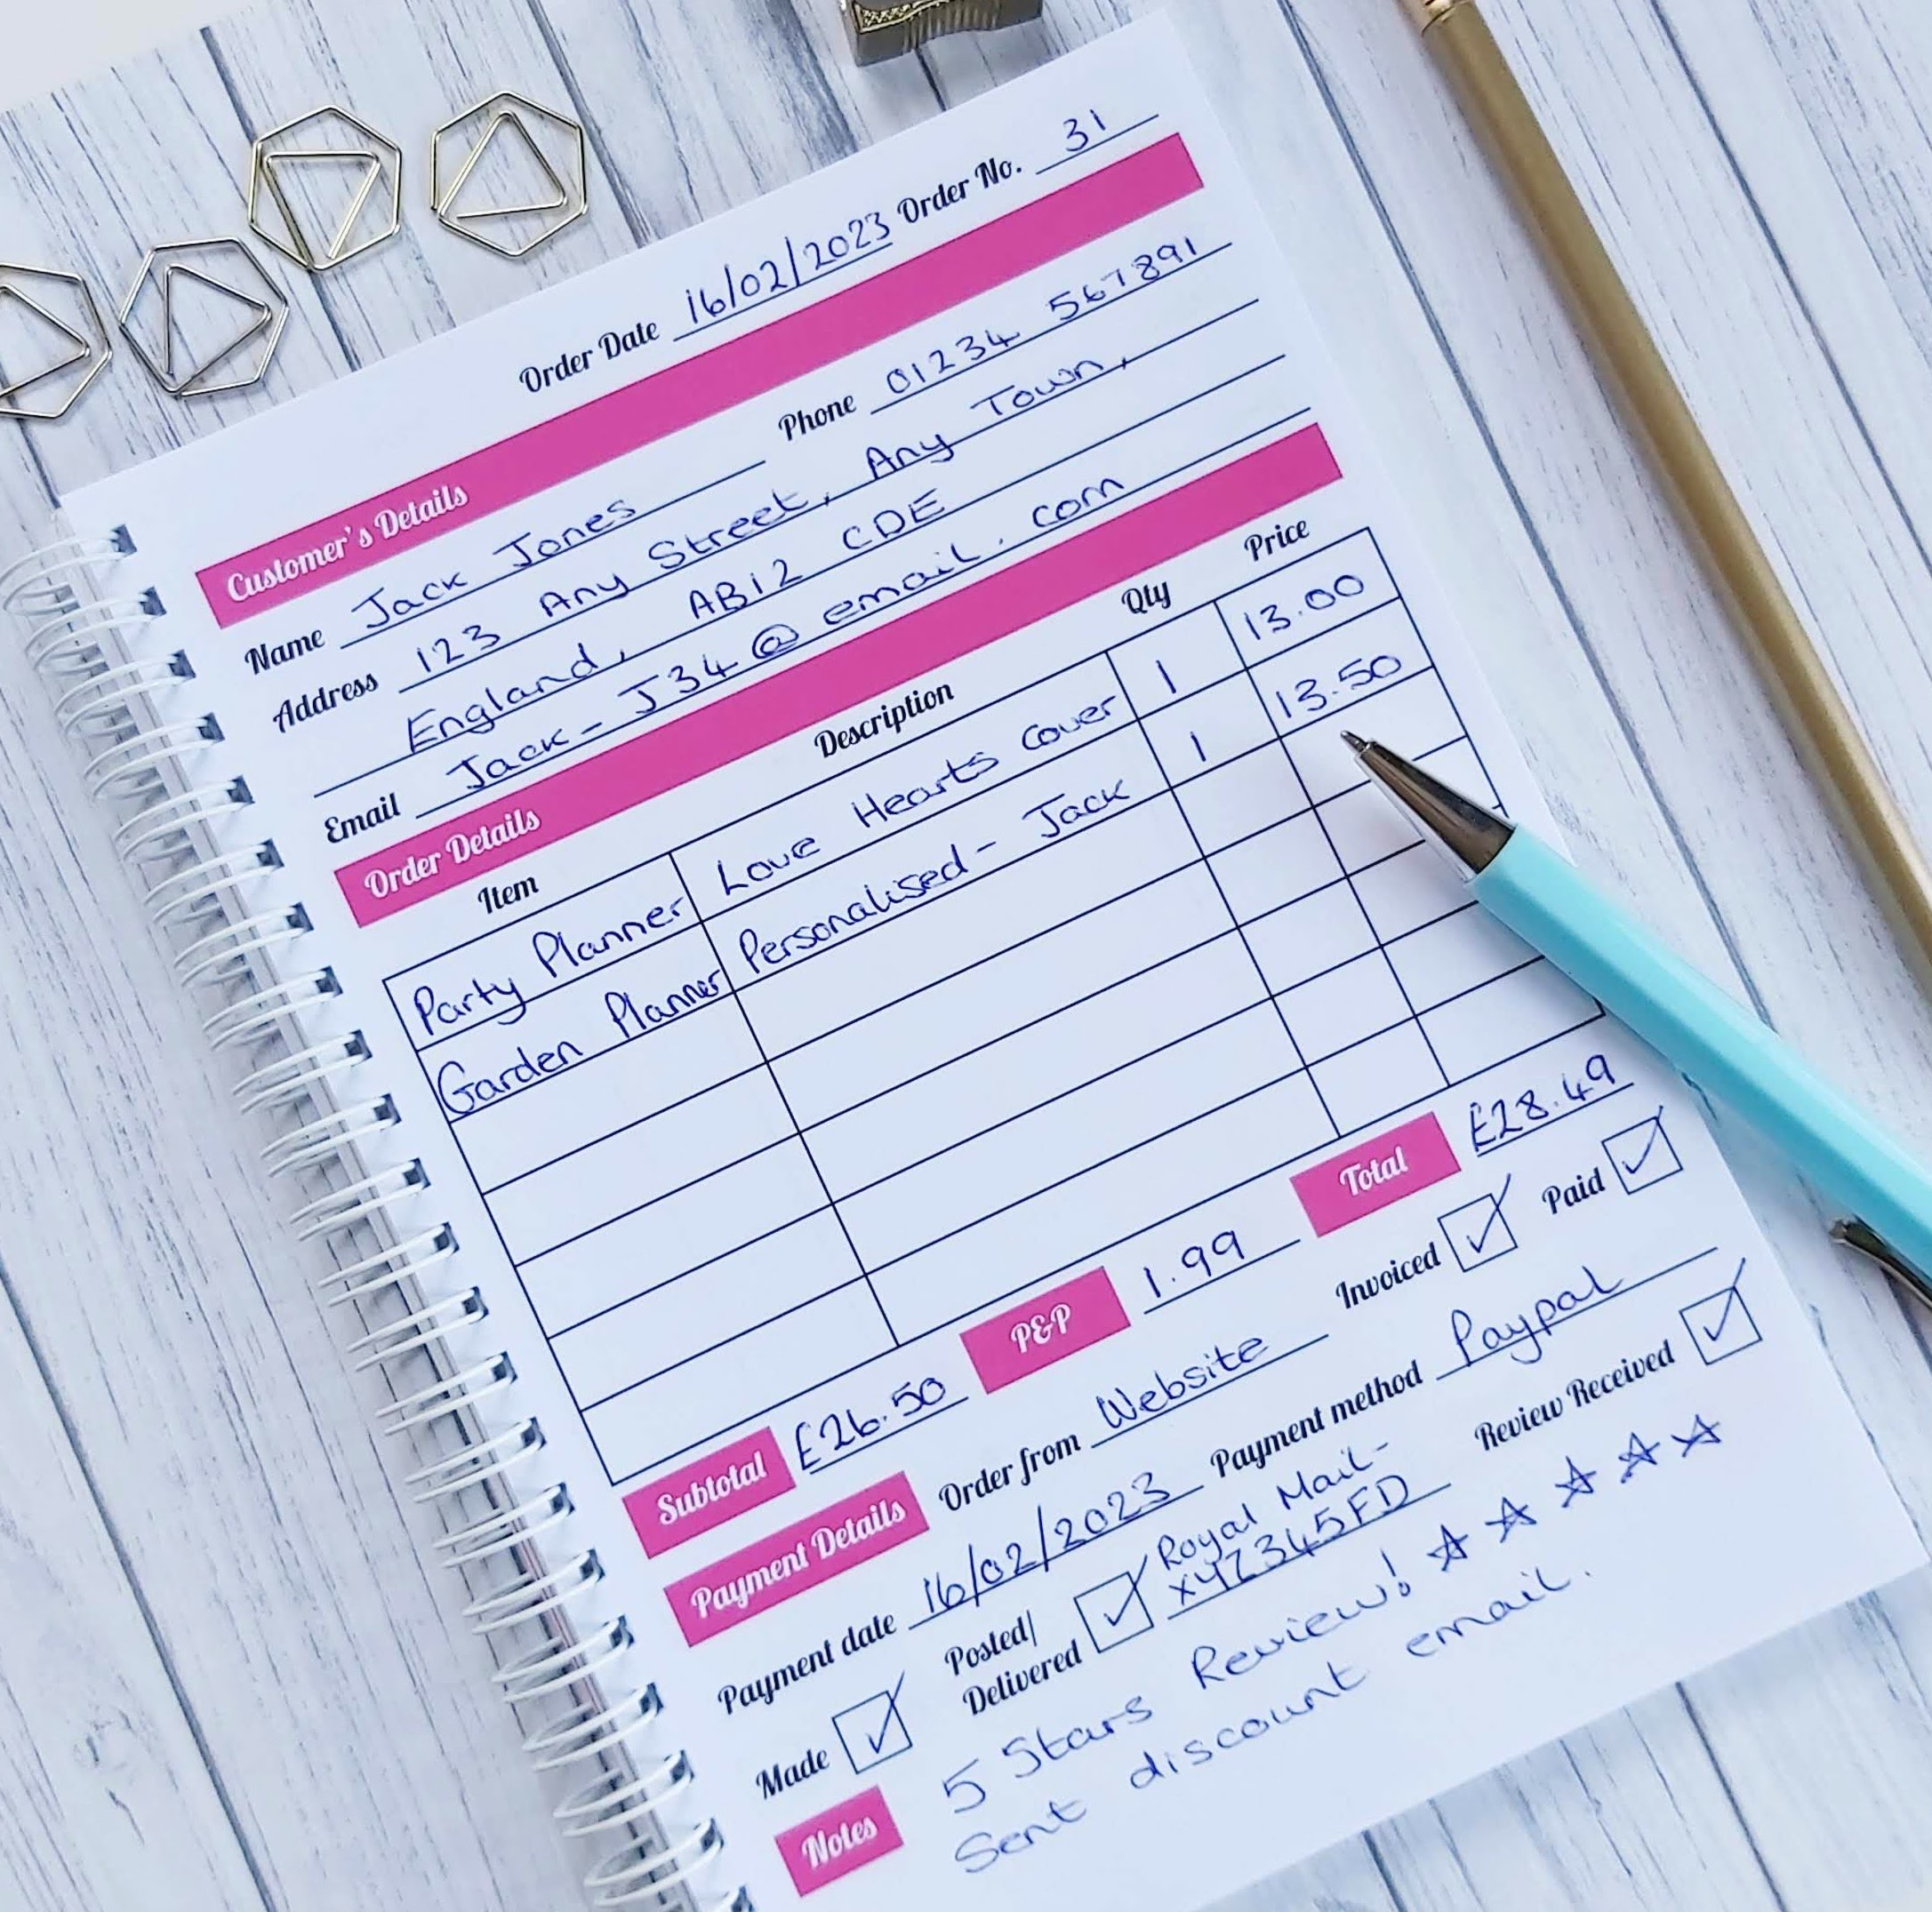 Order Date 16/02/2023 Order No. 31
Customer's Details
Name Jack Jones Phone 01234 567891
Address 123 Any Street, Any Town,
England, AB12 CDE
Email Jack-J34@email.com
Order Details
Item Description Qty Price
Party Planner Love Hearts Cover 1 13.00
Garden Planner Personalised - Jack 1 13.50
Subtotal £26.50 P&P 1.99 Total £28.49
Payment Details Order from Website Invoiced Paid
Payment date 16/02/2023 Payment method Paypal
Made Posted/ Delivered Royal Mail- XYZ345FD Review Received
Notes 5 Stars Review! ☆ ☆ ☆ ☆ ☆
Sent discount email.